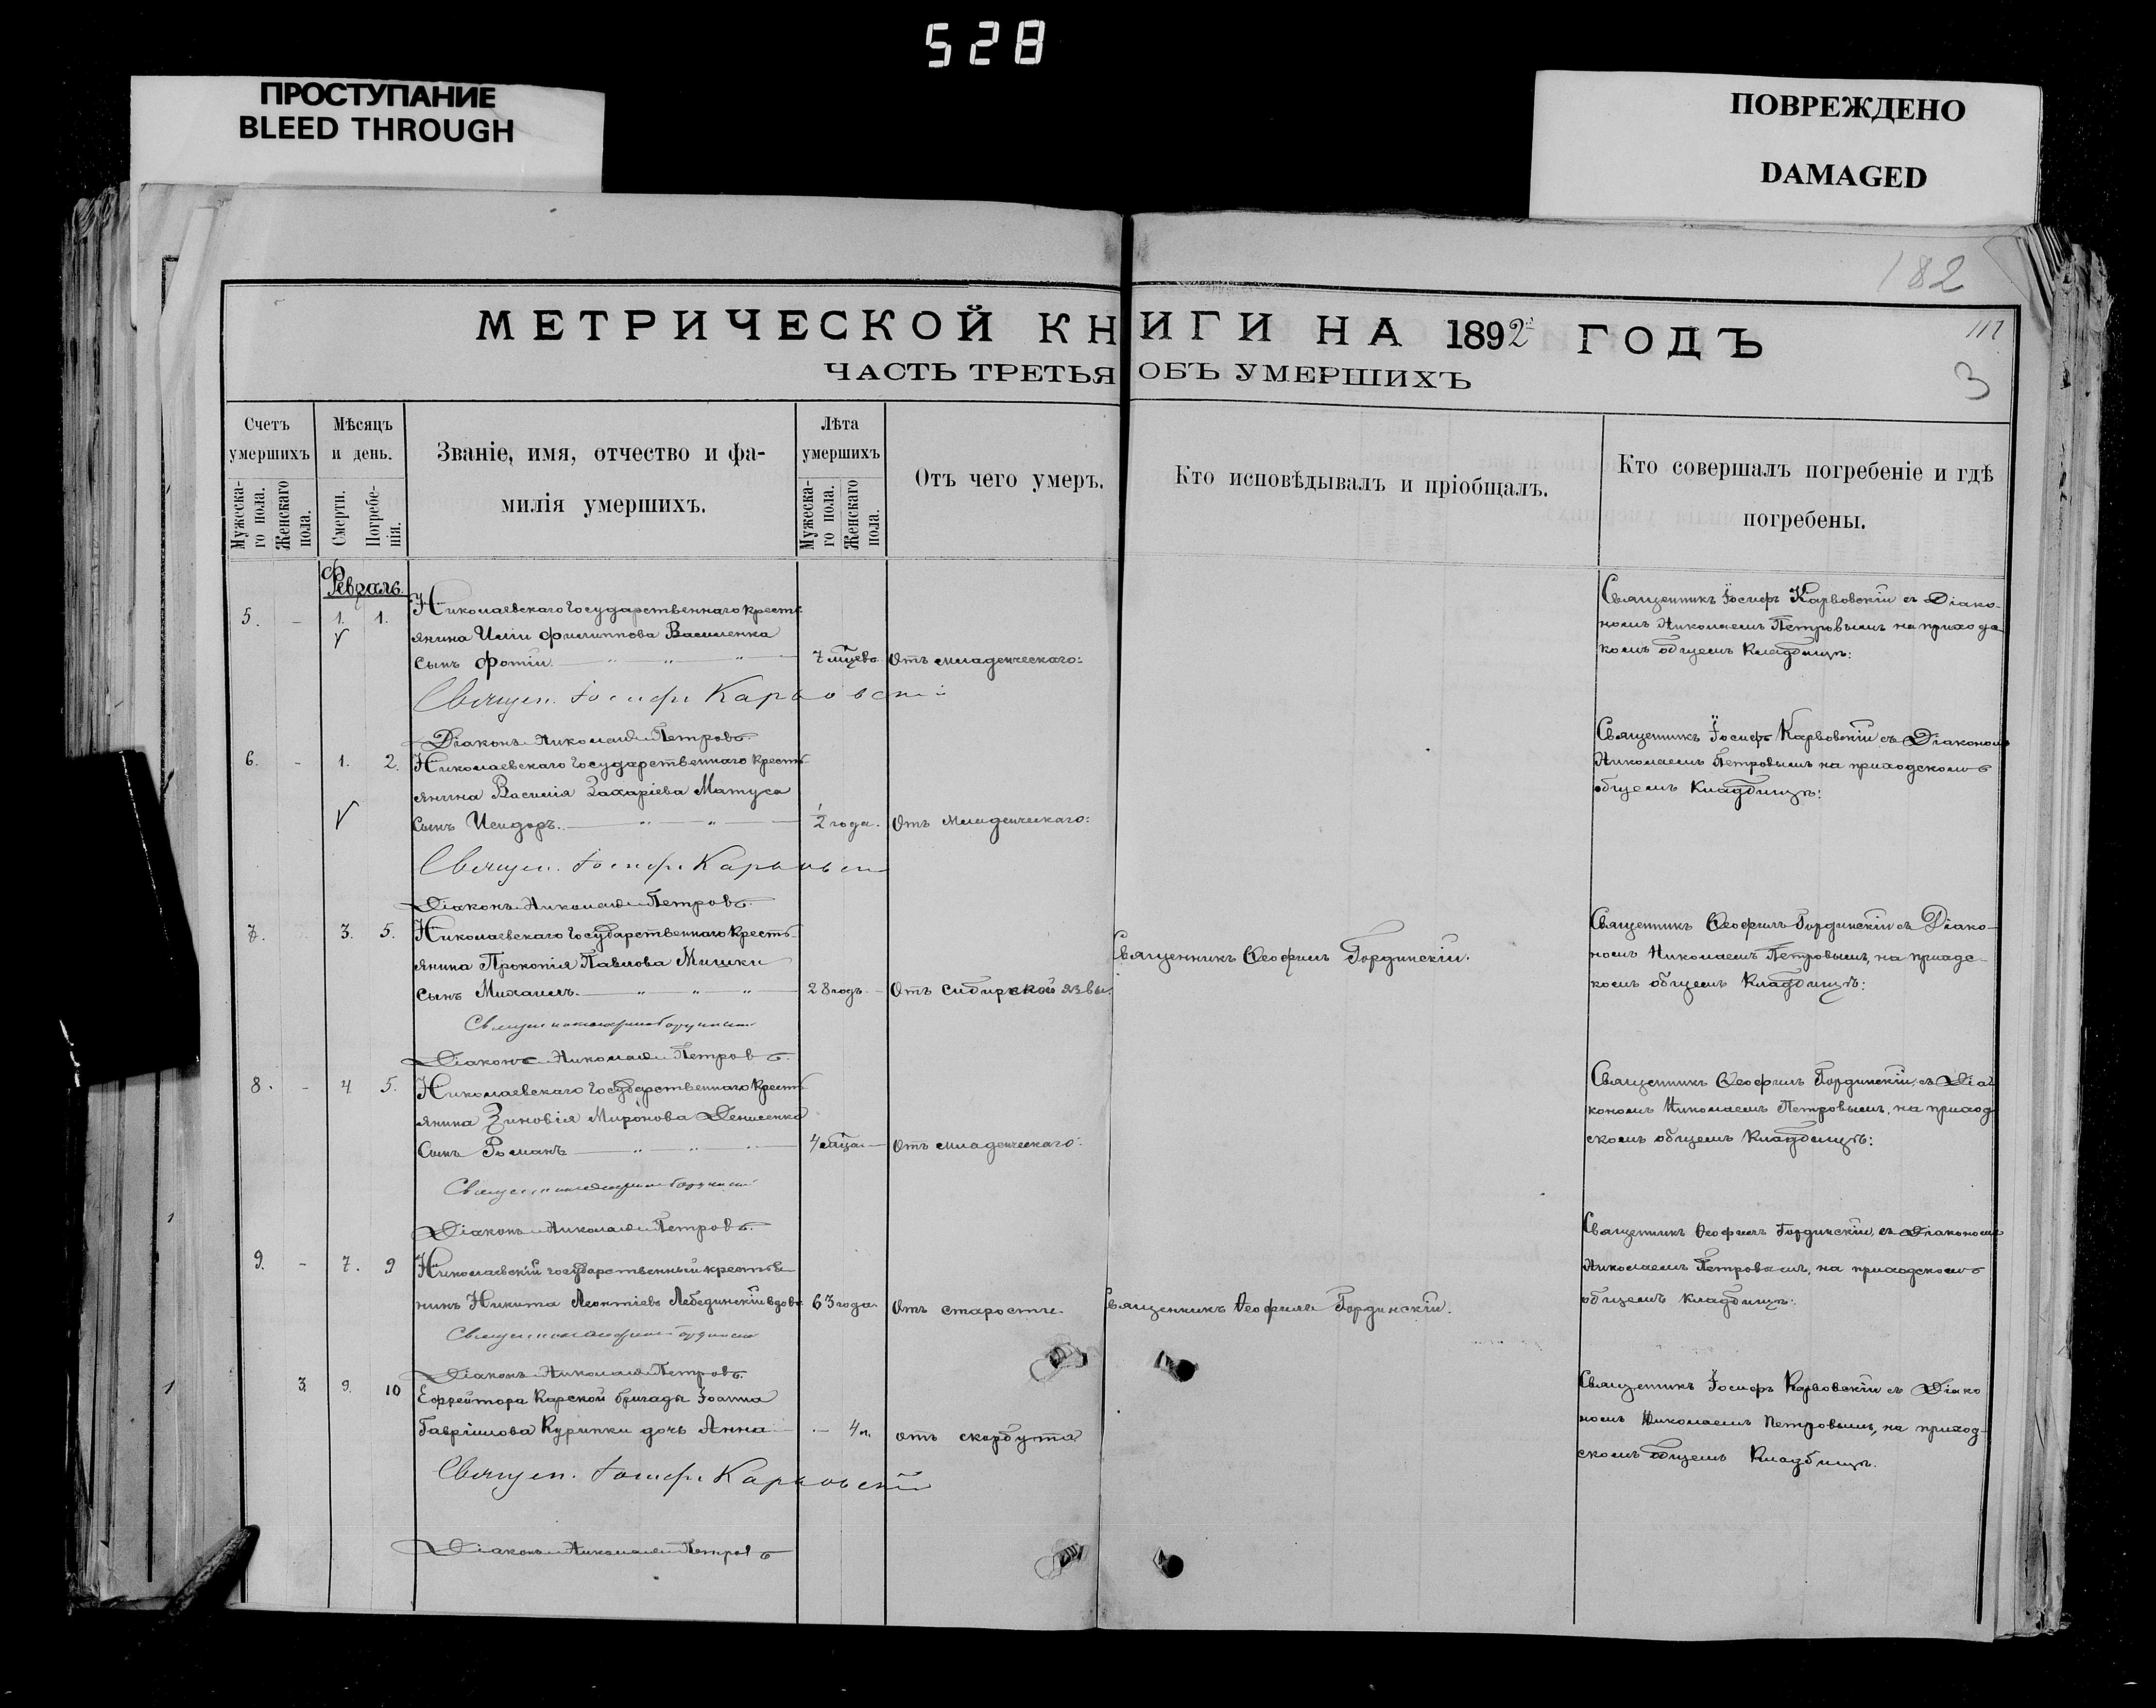 528
ПРОСТУПАНИЕ
BLEED THROUGH
ПОВРЕЖДЕНО
DAMAGED
182
МЕТРИЧЕСКОЙ КНИГИ НА 1892 ГОДЪ
117
ЧАСТЬ ТРЕТЬЯ ОБЪ УМЕРШИХЪ
3
Счетъ умершихъ
Мужеска-го пола.
Женскаго пола.
Мѣсяцъ и день.
Смерти.
Погребе-нія.
Званіе, имя, отчество и фа-
милія умершихъ.
Лѣта умершихъ
Мужеска-го пола.
Женскаго пола.
Отъ чего умеръ.
Кто исповѣдывалъ и пріобщалъ.
Кто совершалъ погребеніе и гдѣ
погребены.
Февраль.
5. - 1. 1. Николаевскаго Государственнаго кресть-
янина Иліи Филиппова Василенка
сынъ Фотій. 7 мцевъ Отъ младенческаго:
Священникъ Іосифъ Карвовскій съ Діако-
номъ Николаемъ Петровымъ на приходс
комъ общемъ кладбищѣ:
Священ. Іосифъ Карвовскій
Діаконъ Николай Петровъ.
6. - 1. 2. Николаевскаго Государственнаго кресть-
янина Василія Захаріева Матуса
сынъ Исидоръ. 1/2 года. Отъ младенческаго:
Священникъ Іосифъ Карвовскій съ Діакономъ
Николаемъ Петровымъ на приходскомъ
общемъ кладбищѣ:
Священ. Іосифъ Карвовскій
Діаконъ Николай Петровъ.
7. 3. 5. Николаевскаго Государственнаго кресть-
янина Прокопія Павлова Мишки
сынъ Михаилъ. 28 годъ Отъ сибирской язвы.
Священникъ Ѳеофилъ Гординскій.
Священникъ Ѳеофилъ Гординскій съ Діако-
номъ Николаемъ Петровымъ, на приадс-
комъ общемъ кладбищѣ:
Діаконъ Николай Петровъ.
8. - 4 5. Николаевскаго Государственнаго кресть
янина Зиновія Миронова Денисенка
сынъ Романъ 4 мца Отъ младенческаго:
Священникъ Ѳеофилъ Гординскій, съ Діа
кономъ Николаемъ Петровымъ, на приход
скомъ общемъ кладбищѣ:
Діаконъ Николай Петровъ.
9. - 7. 9 Николаевскій государственный крестья
нинъ Никита Леонтіевъ Лебединскій вдовъ 63 года Отъ старости.
Священникъ Ѳеофилъ Гординскій.
Священникъ Ѳеофилъ Гординскій, съ Діакономъ
Николаемъ Петровымъ, на приходскомъ
общемъ кладбищѣ:
Діаконъ Николай Петровъ.
3. 9. 10 Ефрейтора Карской бригады Іоанна
Гавріилова Курипки дочь Анна - 4 л. отъ скорбута
Священникъ Іосифъ Карвовскій съ Діако
номъ Николаемъ Петровымъ, на приход-
скомъ общемъ кладбищѣ.
Священ. Іосифъ Карвовскій
Діаконъ Николай Петровъ